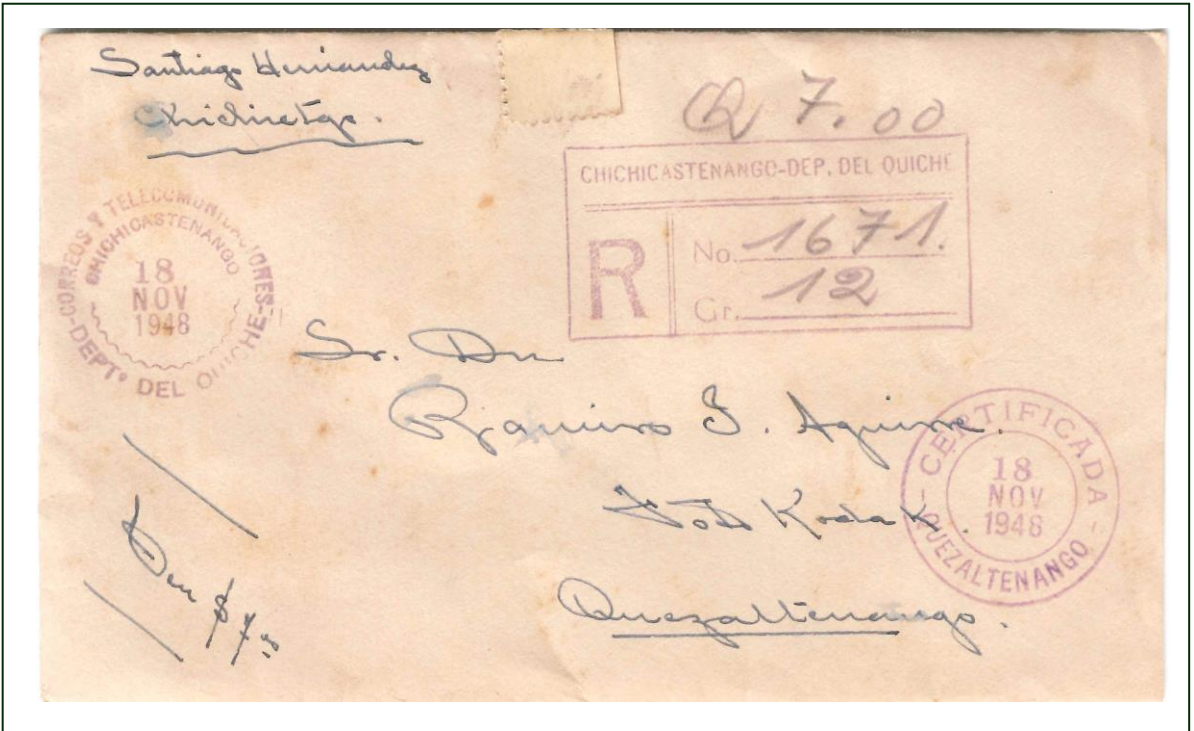 Santiago Hernandez
Chichictgo.
Q 7.00
CHICHICASTENANGO-DEP. DEL QUICHE
R
No. 1671.
Gr. 12
CORREOS Y TELECOMUNICACIONES
CHICHICASTENANGO
18
NOV
1948
DEPTO DEL QUICHE
Sr. Dn
Ramiro J. Aguirre.
Foto Kodak.
Quezaltenango.
CERTIFICADA
18
NOV
1948
QUEZALTENANGO
$7.00